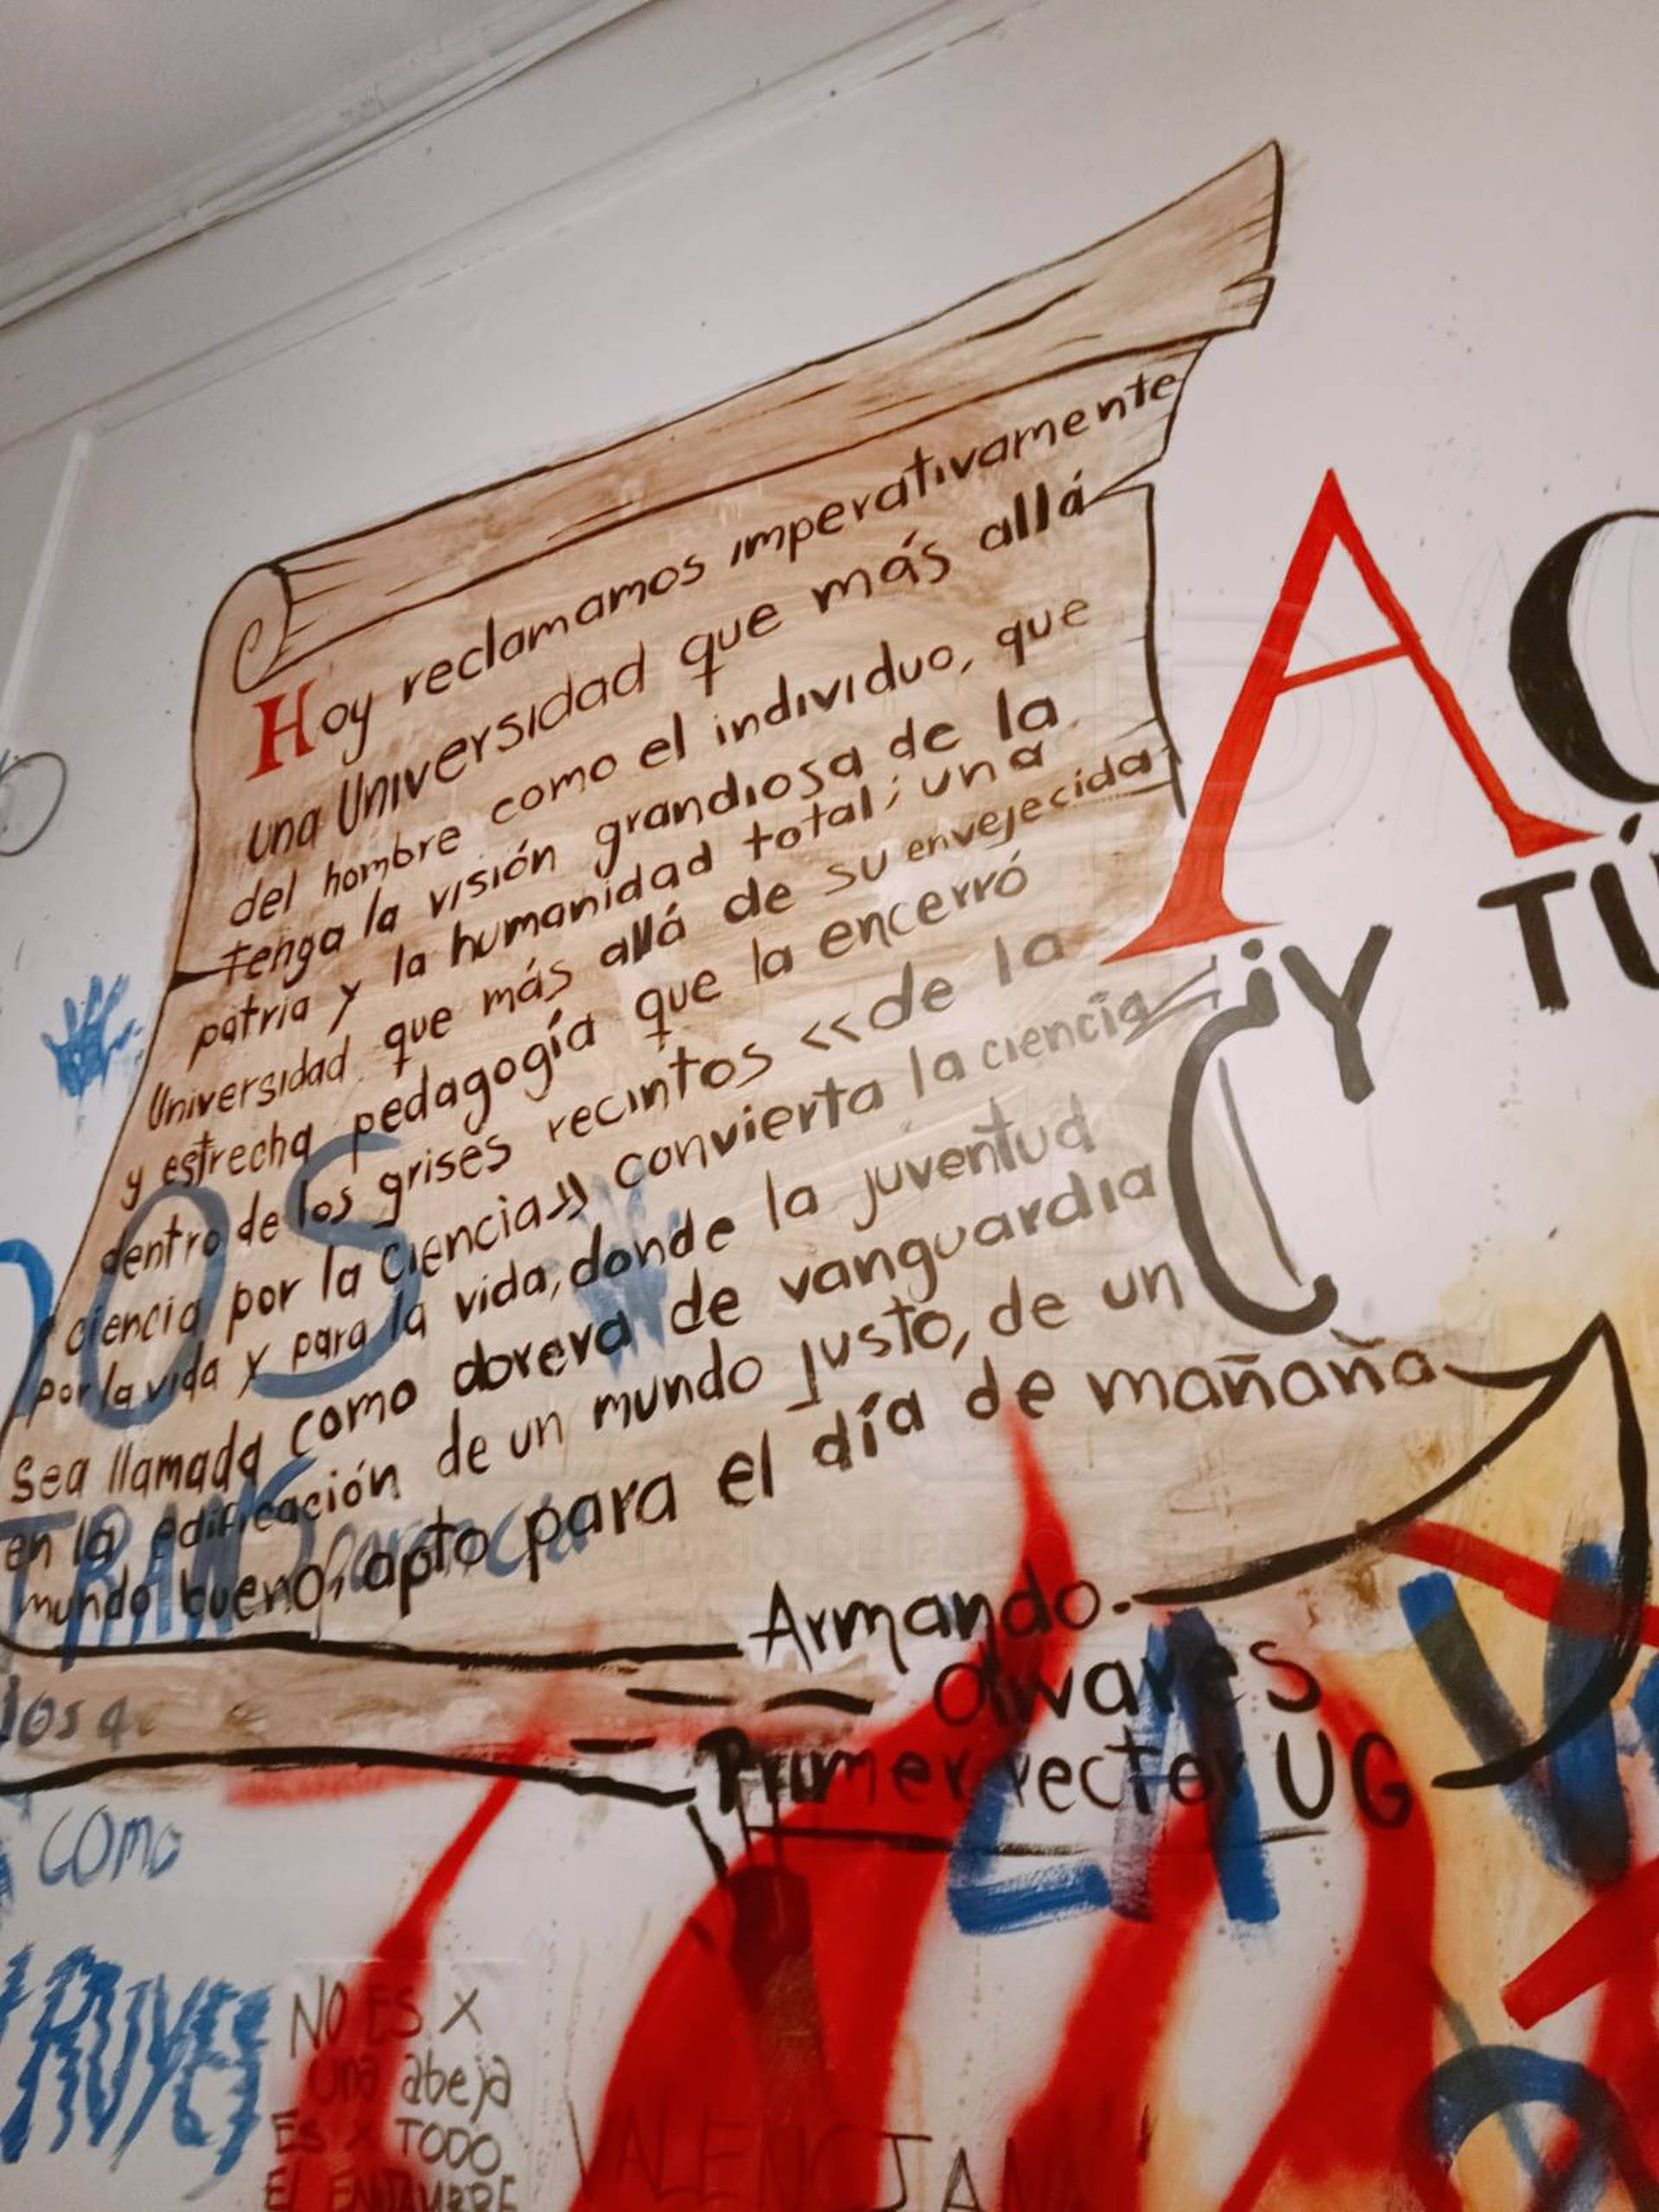 Hoy reclamamos imperativamente
una Universidad que más allá
del hombre como el individuo, que
tenga la visión grandiosa de la
patria y la humanidad total; una
Universidad que más allá de su envejecida
y estrecha pedagogía que la encerró
dentro de los grises recintos <<de la
ciencia por la ciencia>> convierta la ciencia
por la vida y para la vida, donde la juventud
sea llamada como obrera de vanguardia
en la edificación de un mundo justo, de un
mundo bueno, apto para el día de mañana
Armando
olivares
Primer rector UG
A
¿Y TÚ
C
OS
TRANS
COMO
TRUYES
NO ES X
una abeja
ES X TODO
El ENJAMBRE
VALENCIANA
LA